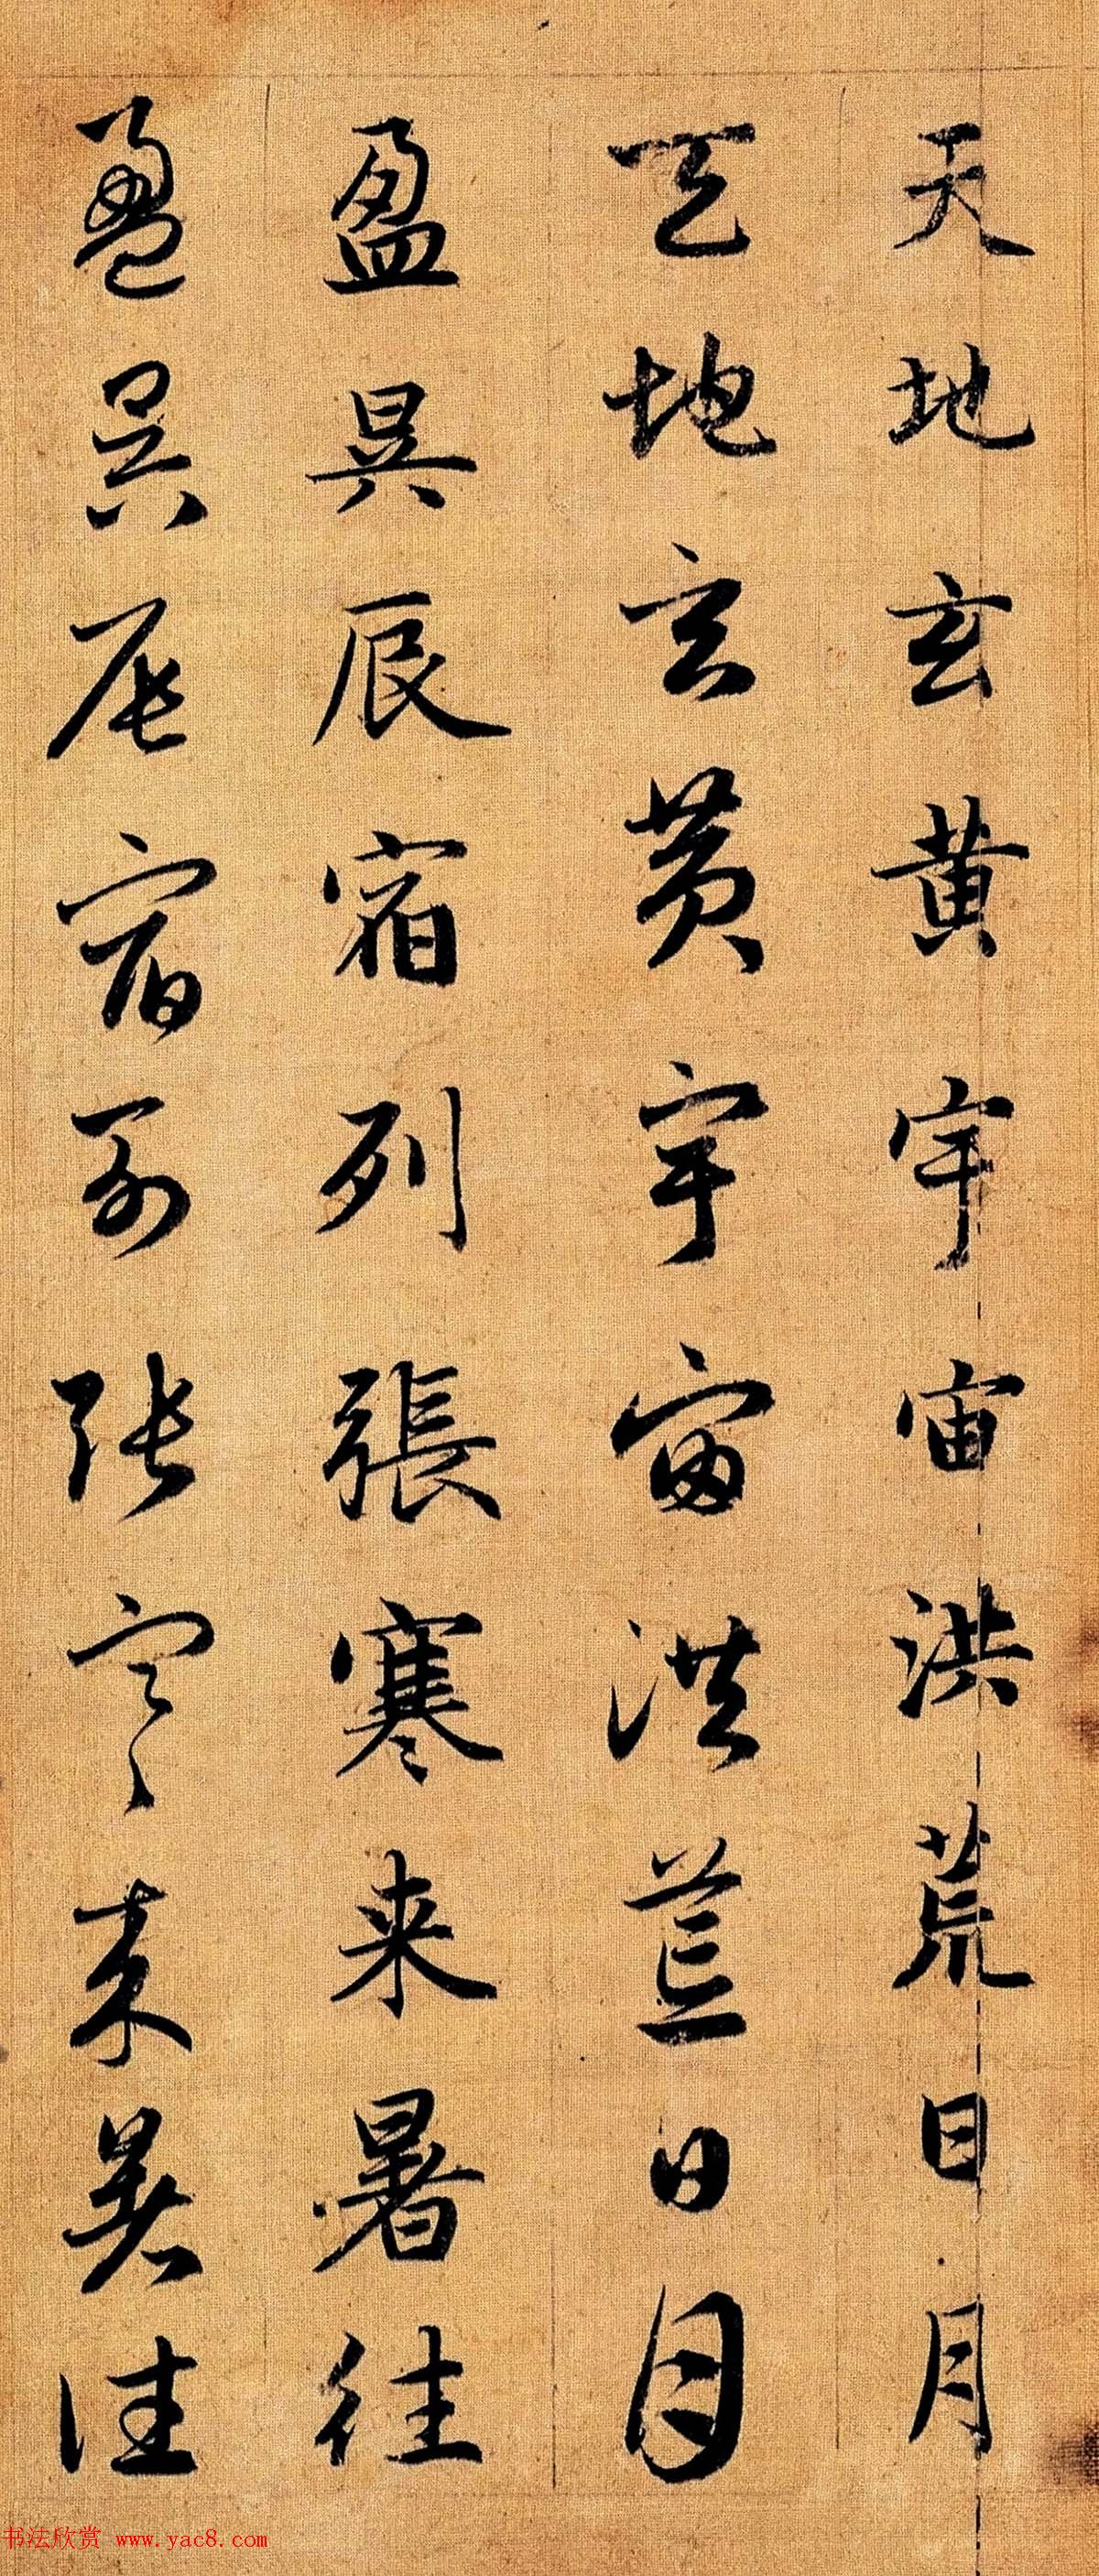 天地玄黄宇宙洪荒日月
天地玄黄宇宙洪荒日月
盈昃辰宿列張寒来暑往
盈昃辰宿列张寒来暑往
书法欣赏 www.yac8.com